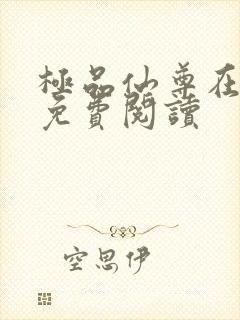 極品仙尊在
免費閱讀
空思伊